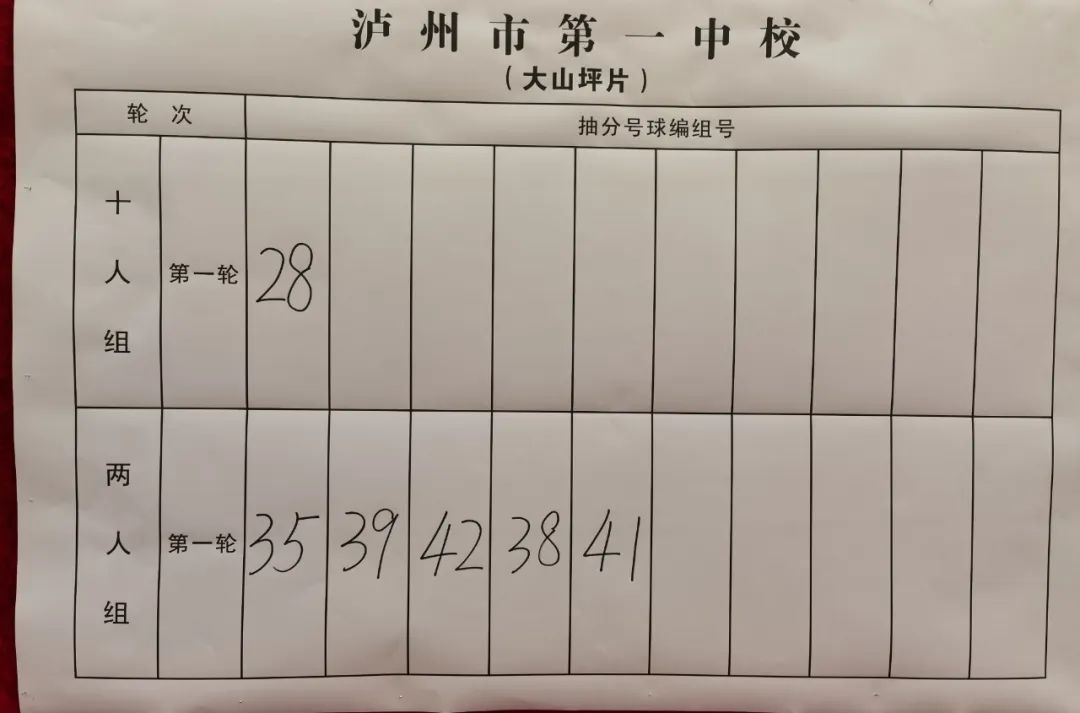 泸州市第一中校
（大山坪片）
轮次 抽分号球编组号
十人组 第一轮 28
两人组 第一轮 35 39 42 38 41